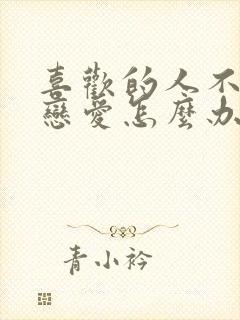 喜歡的人不
戀愛怎麼办
青小衿